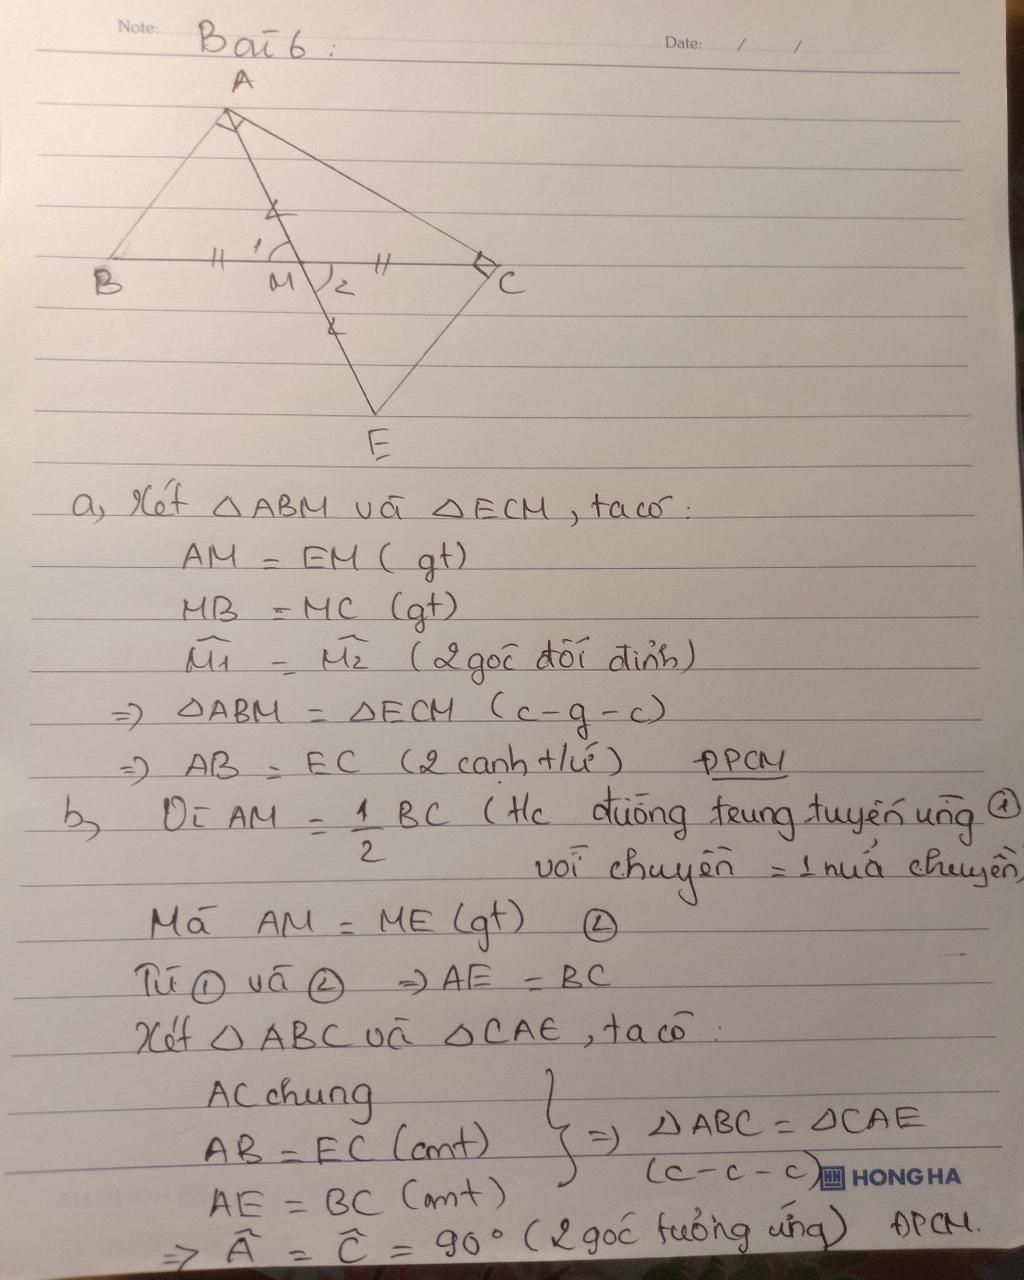 Note: Bài 6: Date: / /
A
1
B M 2 C
E
a, Xét △ABM và △ECM, ta có:
AM = EM (gt)
MB = MC (gt)
M̂1 = M̂2 (2 góc đối đỉnh)
=> △ABM = △ECM (c-g-c)
=> AB = EC (2 cạnh t/ứ) ĐPCM
b, Vì AM = 1/2 BC (t/c đường trung tuyến ứng ①
với chuyền = 1 nửa chuyền)
Mà AM = ME (gt) ②
Từ ① và ② => AE = BC
Xét △ABC và △CAE, ta có:
AC chung
AB = EC (cmt) } => △ABC = △CAE
AE = BC (cmt) (c-c-c)
HH HONG HA
=> Â = Ĉ = 90° (2 góc tương ứng) ĐPCM.